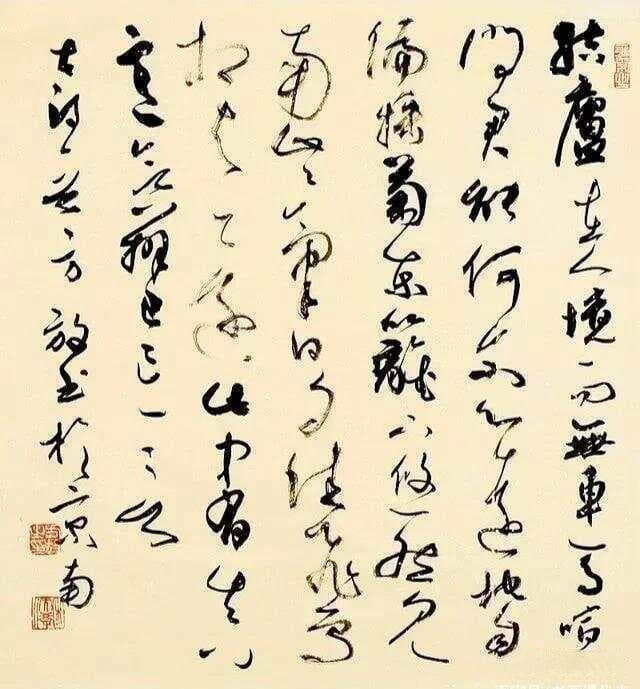 結廬在人境而無車馬喧
問君能何尔心遠地自
偏採菊東籬下悠然見
南山〻氣日夕佳飛鳥
相与還此中有真
意欲辨已忘言
方放書於京南